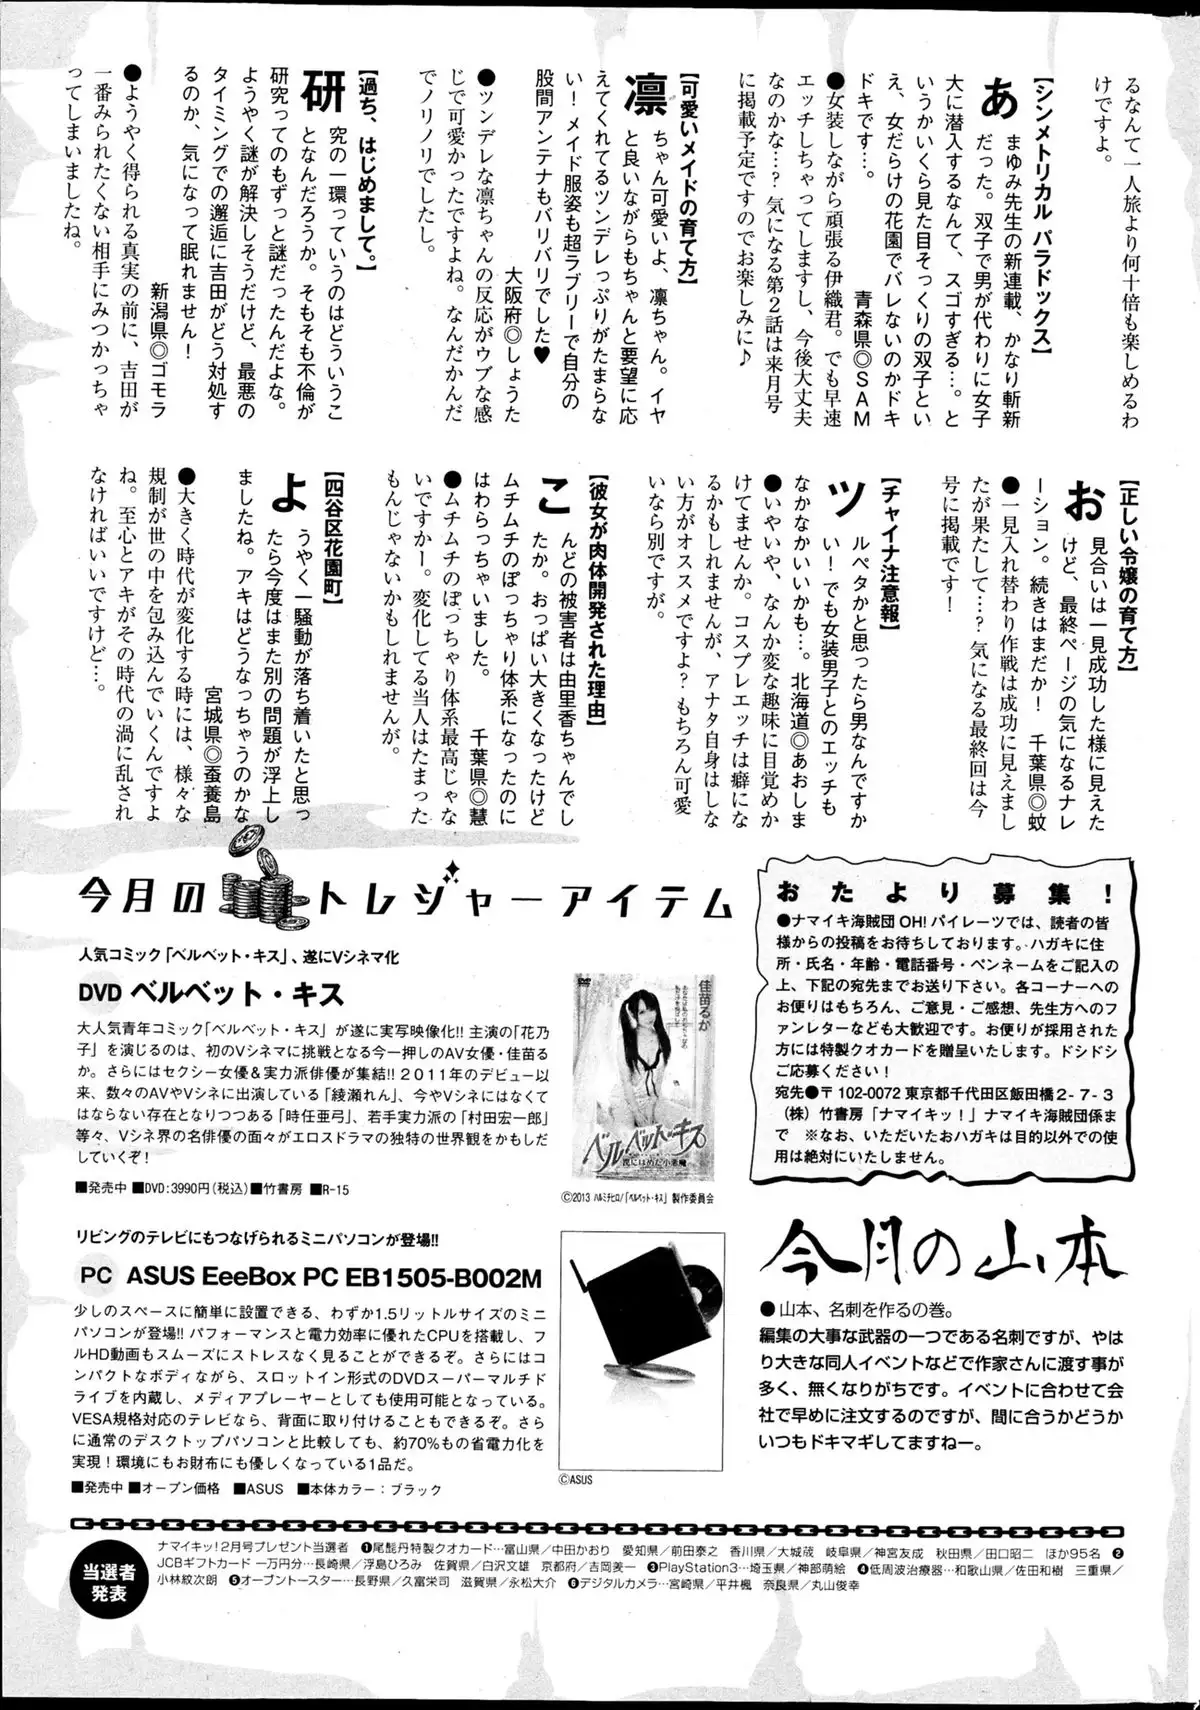 るなんて一人旅より何十倍も楽しめるわ
けですよ。
【シンメトリカル パラドックス】
あまゆみ先生の新連載、かなり斬新
だった。双子で男が代わりに女子
大に潜入するなんて、スゴすぎる…。と
いうかいくら見た目そっくりの双子とい
え、女だらけの花園でバレないのかドキ
ドキです…。 青森県◎SAM
●女装しながら頑張る伊織君。でも早速
エッチしちゃってますし、今後大丈夫
なのかな…? 気になる第2話は来月号
に掲載予定ですのでお楽しみに♪
【可愛いメイドの育て方】
凛ちゃん可愛いよ、凛ちゃん。イヤ
と良いながらもちゃんと要望に応
えてくれてるツンデレっぷりがたまらな
い! メイド服姿も超ラブリーで自分の
股間アンテナもバリバリでした♥
大阪府◎しょうた
●ツンデレな凛ちゃんの反応がウブな感
じで可愛かったですよね。なんだかんだ
でノリノリでしたし。
【過ち、はじめまして。】
研究の一環っていうのはどういうこ
となんだろうか。そもそも不倫が
研究ってのもずっと謎だったんだよな。
ようやく謎が解決しそうだけど、最悪の
タイミングでの邂逅に吉田がどう対処す
るのか、気になって眠れません!
新潟県◎ゴモラ
●ようやく得られる真実の前に、吉田が
一番みられたくない相手にみつかっちゃ
ってしまいましたね。
【正しい令嬢の育て方】
お見合いは一見成功した様に見えた
けど、最終ページの気になるナレ
ーション。続きはまだか! 千葉県◎蚊
●一見入れ替わり作戦は成功に見えまし
たが果たして…? 気になる最終回は今
号に掲載です!
【チャイナ注意報】
ツルペタかと思ったら男なんですか
い! でも女装男子とのエッチも
なかなかいいかも…。北海道◎あおしま
●いやいや、なんか変な趣味に目覚めか
けてませんか。コスプレエッチは癖にな
るかもしれませんが、アナタ自身はしな
い方がオススメですよ? もちろん可愛
いなら別ですが。
【彼女が肉体開発された理由】
こんどの被害者は由里香ちゃんでし
たか。おっぱい大きくなったけど
ムチムチのぽっちゃり体系になったのに
はわらっちゃいました。 千葉県◎慧
●ムチムチのぽっちゃり体系最高じゃな
いですかー。変化してる当人はたまった
もんじゃないかもしれませんが。
【四谷区花園町】
ようやく一騒動が落ち着いたと思っ
たら今度はまた別の問題が浮上し
ましたね。アキはどうなっちゃうのかな
宮城県◎蚕養島
●大きく時代が変化する時には、様々な
規制が世の中を包み込んでいくんですよ
ね。至心とアキがその時代の渦に乱され
なければいいですけど…。
今月のトレジャーアイテム
人気コミック「ベルベット・キス」、遂にVシネマ化
DVD ベルベット・キス
大人気青年コミック「ベルベット・キス」が遂に実写映像化!! 主演の「花乃
子」を演じるのは、初のVシネマに挑戦となる今一押しのAV女優・佳苗る
か。さらにはセクシー女優&実力派俳優が集結!! 2011年のデビュー以
来、数々のAVやVシネマに出演している「綾瀬れん」、今やVシネマにはなくて
はならない存在となりつつある「時任亜弓」、若手実力派の「村田宏一郎」
等々、Vシネ界の名俳優の面々がエロスドラマの独特の世界観をかもしだ
していくぞ!
■発売中 ■DVD:3990円(税込) ■竹書房 ■R-15
DVD
佳苗るか
ベルベット・キス
罠にはめた小悪魔
©2013 ハルミチヒロ/「ベルベット・キス」製作委員会
リビングのテレビにもつなげられるミニパソコンが登場!!
PC ASUS EeeBox PC EB1505-B002M
少しのスペースに簡単に設置できる、わずか1.5リットルサイズのミニ
パソコンが登場!! パフォーマンスと電力効率に優れたCPUを搭載し、フ
ルHD動画もスムーズにストレスなく見ることができるぞ。さらにはコ
ンパクトなボディながら、スロットイン形式のDVDスーパーマルチド
ライブを内蔵し、メディアプレーヤーとしても使用可能となっている。
VESA規格対応のテレビなら、背面に取り付けることもできるぞ。さら
に通常のデスクトップパソコンと比較しても、約70%もの省電力化を
実現! 環境にもお財布にも優しくなっている1品だ。
■発売中 ■オープン価格 ■ASUS ■本体カラー:ブラック
©ASUS
おたより募集!
●ナマイキ海賊団OH!パイレーツでは、読者の皆
様からの投稿をお待ちしております。ハガキに住
所・氏名・年齢・電話番号・ペンネームをご記入の
上、下記の宛先までお送り下さい。各コーナーへの
お便りはもちろん、ご意見・ご感想、先生方へのフ
ァンレターなども大歓迎です。お便りが採用された
方には特製クオカードを贈呈いたします。ドシドシ
ご応募ください!
宛先●〒102-0072 東京都千代田区飯田橋2-7-3
(株)竹書房「ナマイキッ!」ナマイキ海賊団係ま
で ※なお、いただいたおハガキは目的以外での使
用は絶対にいたしません。
今月の山本
●山本、名刺を作るの巻。
編集の大事な武器の一つである名刺ですが、やは
り大きな同人イベントなどで作家さんに渡す事が
多く、無くなりがちです。イベントに合わせて会
社で早めに注文するのですが、間に合うかどうか
いつもドキマギしてますねー。
当選者発表
ナマイキッ!2月号プレゼント当選者 ❶尾髭丹特製クオカード…富山県/中田かおり 愛知県/前田泰之 香川県/大城蔵 岐阜県/神宮友成 秋田県/田口昭二 ほか95名 ❷
JCBギフトカード 一万円分…長崎県/浮島ひろみ 佐賀県/白沢文雄 京都府/吉岡美一 ❸PlayStation3…埼玉県/神部萌絵 ❹低周波治療器…和歌山県/佐田和樹 三重県/
小林紋次朗 ❺オーブントースター…長野県/久富栄司 滋賀県/永松大介 ❻デジタルカメラ…宮崎県/平井楓 奈良県/丸山俊幸